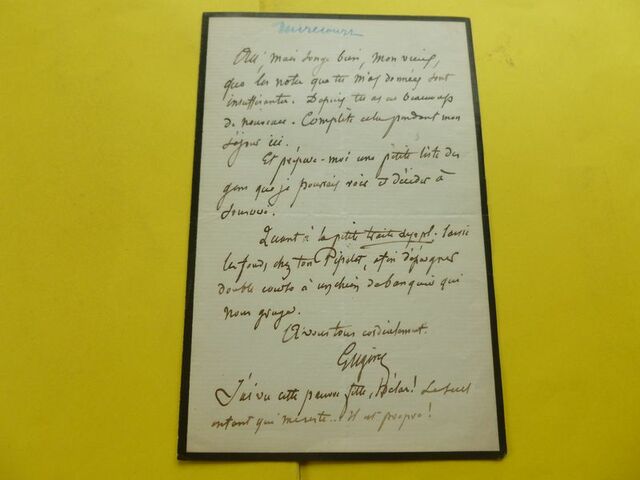 Mirecourt
Oui mais songe bien, mon vieux,
que les notes que tu m'as données sont
insuffisantes. Depuis tu as eu beaucoup
de nouveau. Complète cela pendant mon
séjour ici.
Et prépare-moi une petite liste des
gens que je pourrais voir et décider à
souscrire.
Quant à la petite traite laisse
les fonds chez ton Pipelet, afin d'épargner
double course à un chien de banquier qui
nous gruge.
A vous tous cordialement.
Eugène
J'ai vu cette pauvre fille, hélas! Le seul
enfant qui me reste... il est propre!